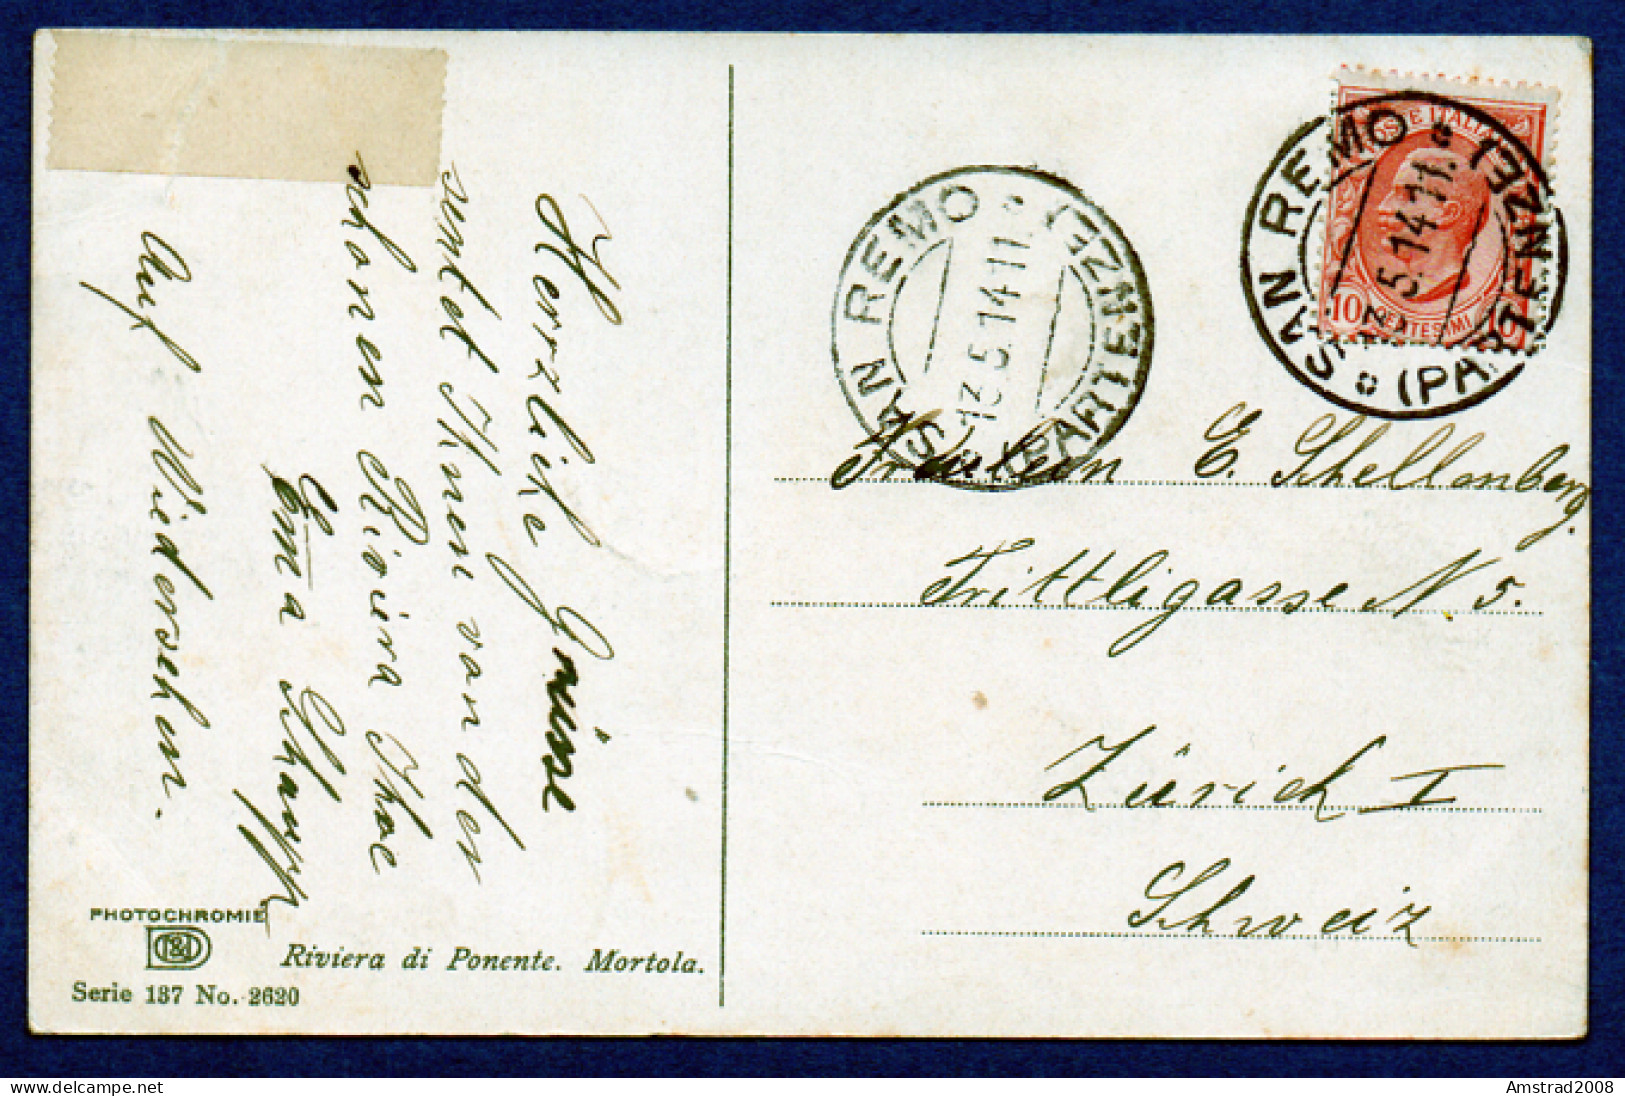 Herzliche Grüsse
sentet Ihnen von der
schönen Riviera Ihre
Ema
Auf Wiedersehen.
PHOTOCHROMIE
Riviera di Ponente. Mortola.
Serie 187 No. 2620
SAN REMO (PARTENZE)
13.5.14 11.
POSTE ITALIANE
10 CENTESIMI 10
SAN REMO (PARTENZE)
13.5.14 11.
Fräulein E. Schellenberg.
Trittligasse N 5.
Zürich I
Schweiz
Amstrad2008